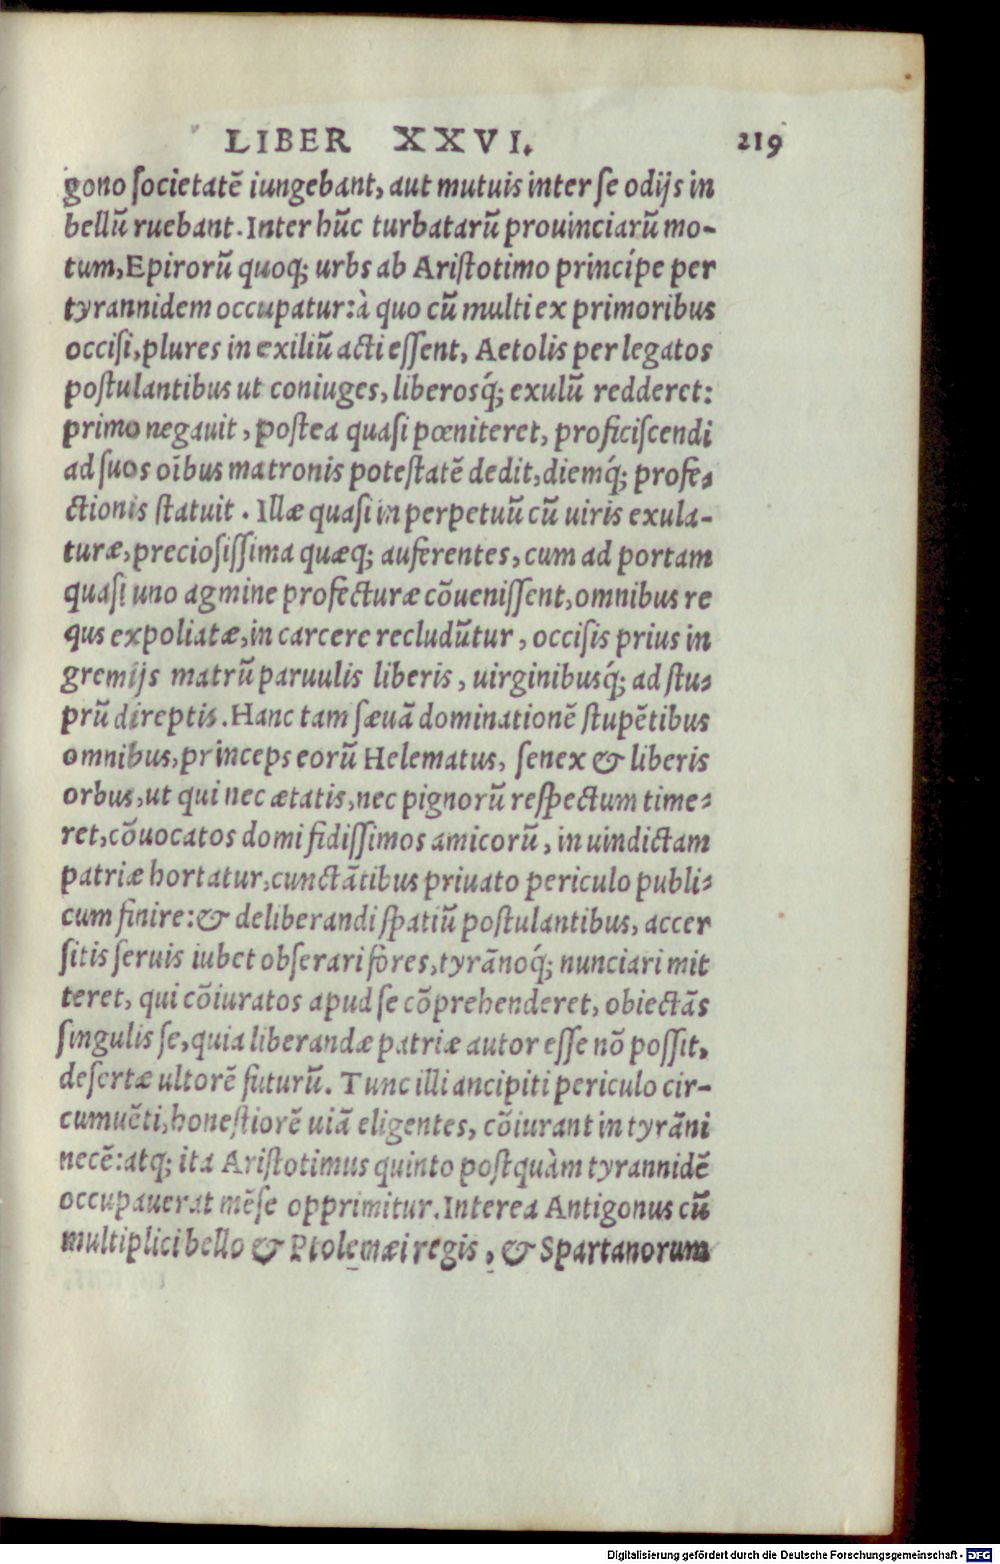 LIBER XXVI. 219
gono societatē iungebant, aut mutuis inter se odijs in
bellū ruebant. Inter hūc turbatarū prouinciarū mo-
tum, Epirorū quoq; urbs ab Aristotimo princípe per
tyrannidem occupatur: à quo cū multi ex primoribus
occisi, plures in exiliū acti essent, Aetolis per legatos
postulantibus ut coniuges, liberosq́; exulū redderet:
primo negauit, postea quasi pœniteret, proficiscendi
ad suos oībus matronis potestatē dedit, diemq́; profe-
ctionis statuit. Illæ quasi in perpetuū cū uiris exula-
turæ, preciosissima quæq; auferentes, cum ad portam
quasi uno agmine profecturæ cōuenissent, omnibus re
qus expoliatæ, in carcere recludūtur, occisis prius in
gremijs matrū paruulis liberis, uirginibusq́; ad stu-
prū direptis. Hanc tam sæuā dominationē stupētibus
omnibus, princeps eorū Helematus, senex & liberis
orbus, ut qui nec ætatis, nec pignorū respectum time-
ret, cōuocatos domi fidissimos amicorū, in uindictam
patriæ hortatur, cunctātibus priuato periculo publi-
cum finire: & deliberandi spatiū postulantibus, accer
sitis seruis iubet obserari fores, tyrānoq́; nunciari mit
teret, qui cōiuratos apud se cōprehenderet, obiectās
singulis se, quia liberandæ patriæ autor esse nō possit,
desertæ ultorē futurū. Tunc illi ancipiti periculo cir-
cumuēti, honestiorē uiā eligentes, cōiurant in tyrāni
necē: atq; ita Aristotimus quinto postquàm tyrannidē
occupauerat mēse opprimitur. Interea Antigonus cū
multiplici bello & Ptolemæi regis, & Spartanorum
Digitalisierung gefördert durch die Deutsche Forschungsgemeinschaft - DFG